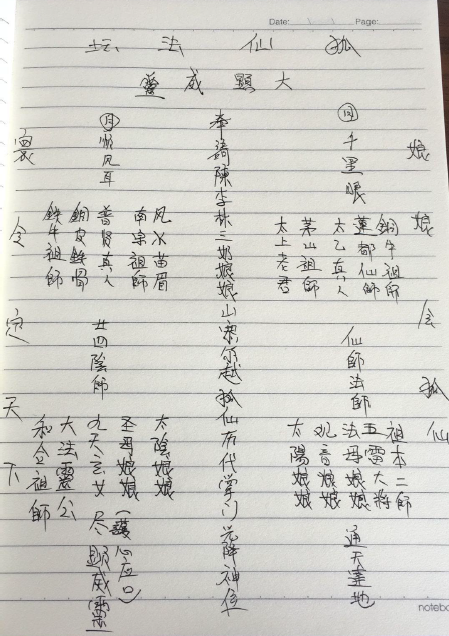 Date: Page:
狐仙法坛
大顯威靈
娘娘 狐仙
日 千里眼 仙師法師 通天達地
銅牛祖師
蓮都仙師
太乙真人
茅山祖師
太上老君
祖本二師
五雷大將
法母娘娘
观音娘娘
太陽娘娘
奉請陳李林三奶娘娘山 狐仙 代掌门 降神位
月 順风耳 廿四陰師 尽顯威靈
风火苗眉
南宗祖師
普賢真人
銅皮鉄骨
鉄牛祖師
太陰娘娘
圣母娘娘
(護心应口)
九天玄女
大法靈公
和合祖師
令定天下
noteb